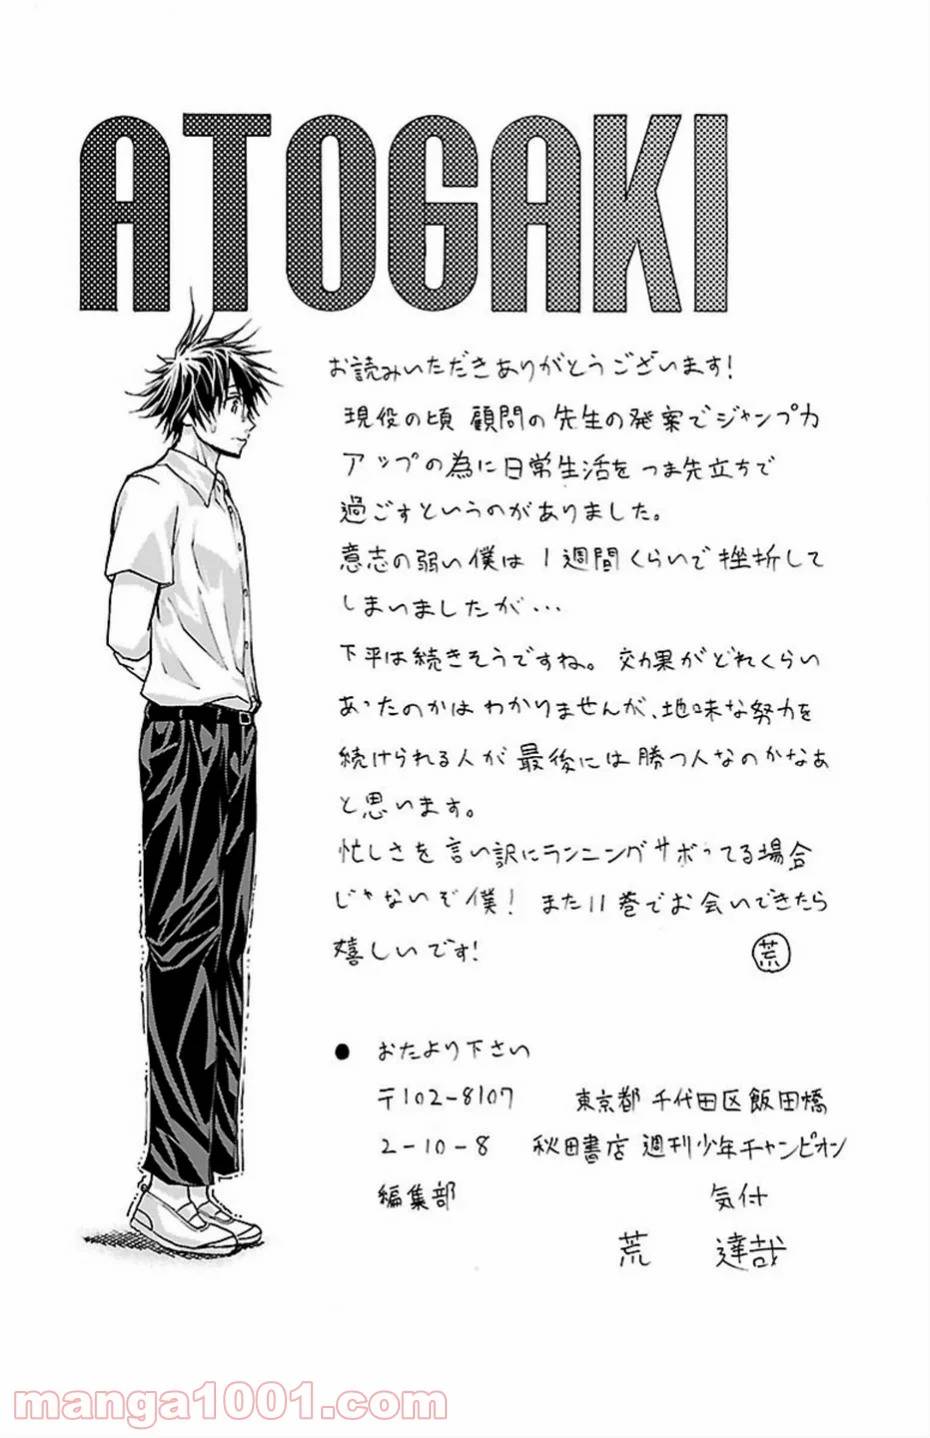 ATOGAKI
お読みいただきありがとうございます!
現役の頃 顧問の先生の発案でジャンプ力
アップの為に日常生活をつま先立ちで
過ごすというのがありました。
意志の弱い僕は1週間くらいで挫折して
しまいましたが…
下平は続きそうですね。効果がどれくらい
あったのかはわかりませんが、地味な努力を
続けられる人が最後には勝つ人なのかなぁ
と思います。
忙しさを言い訳にランニングサボってる場合
じゃないぞ僕! また11巻でお会いできたら
嬉しいです! 荒
● おたより下さい
〒102-8107 東京都千代田区飯田橋
2-10-8 秋田書店 週刊少年チャンピオン
編集部 気付
荒 達哉
manga1001.com